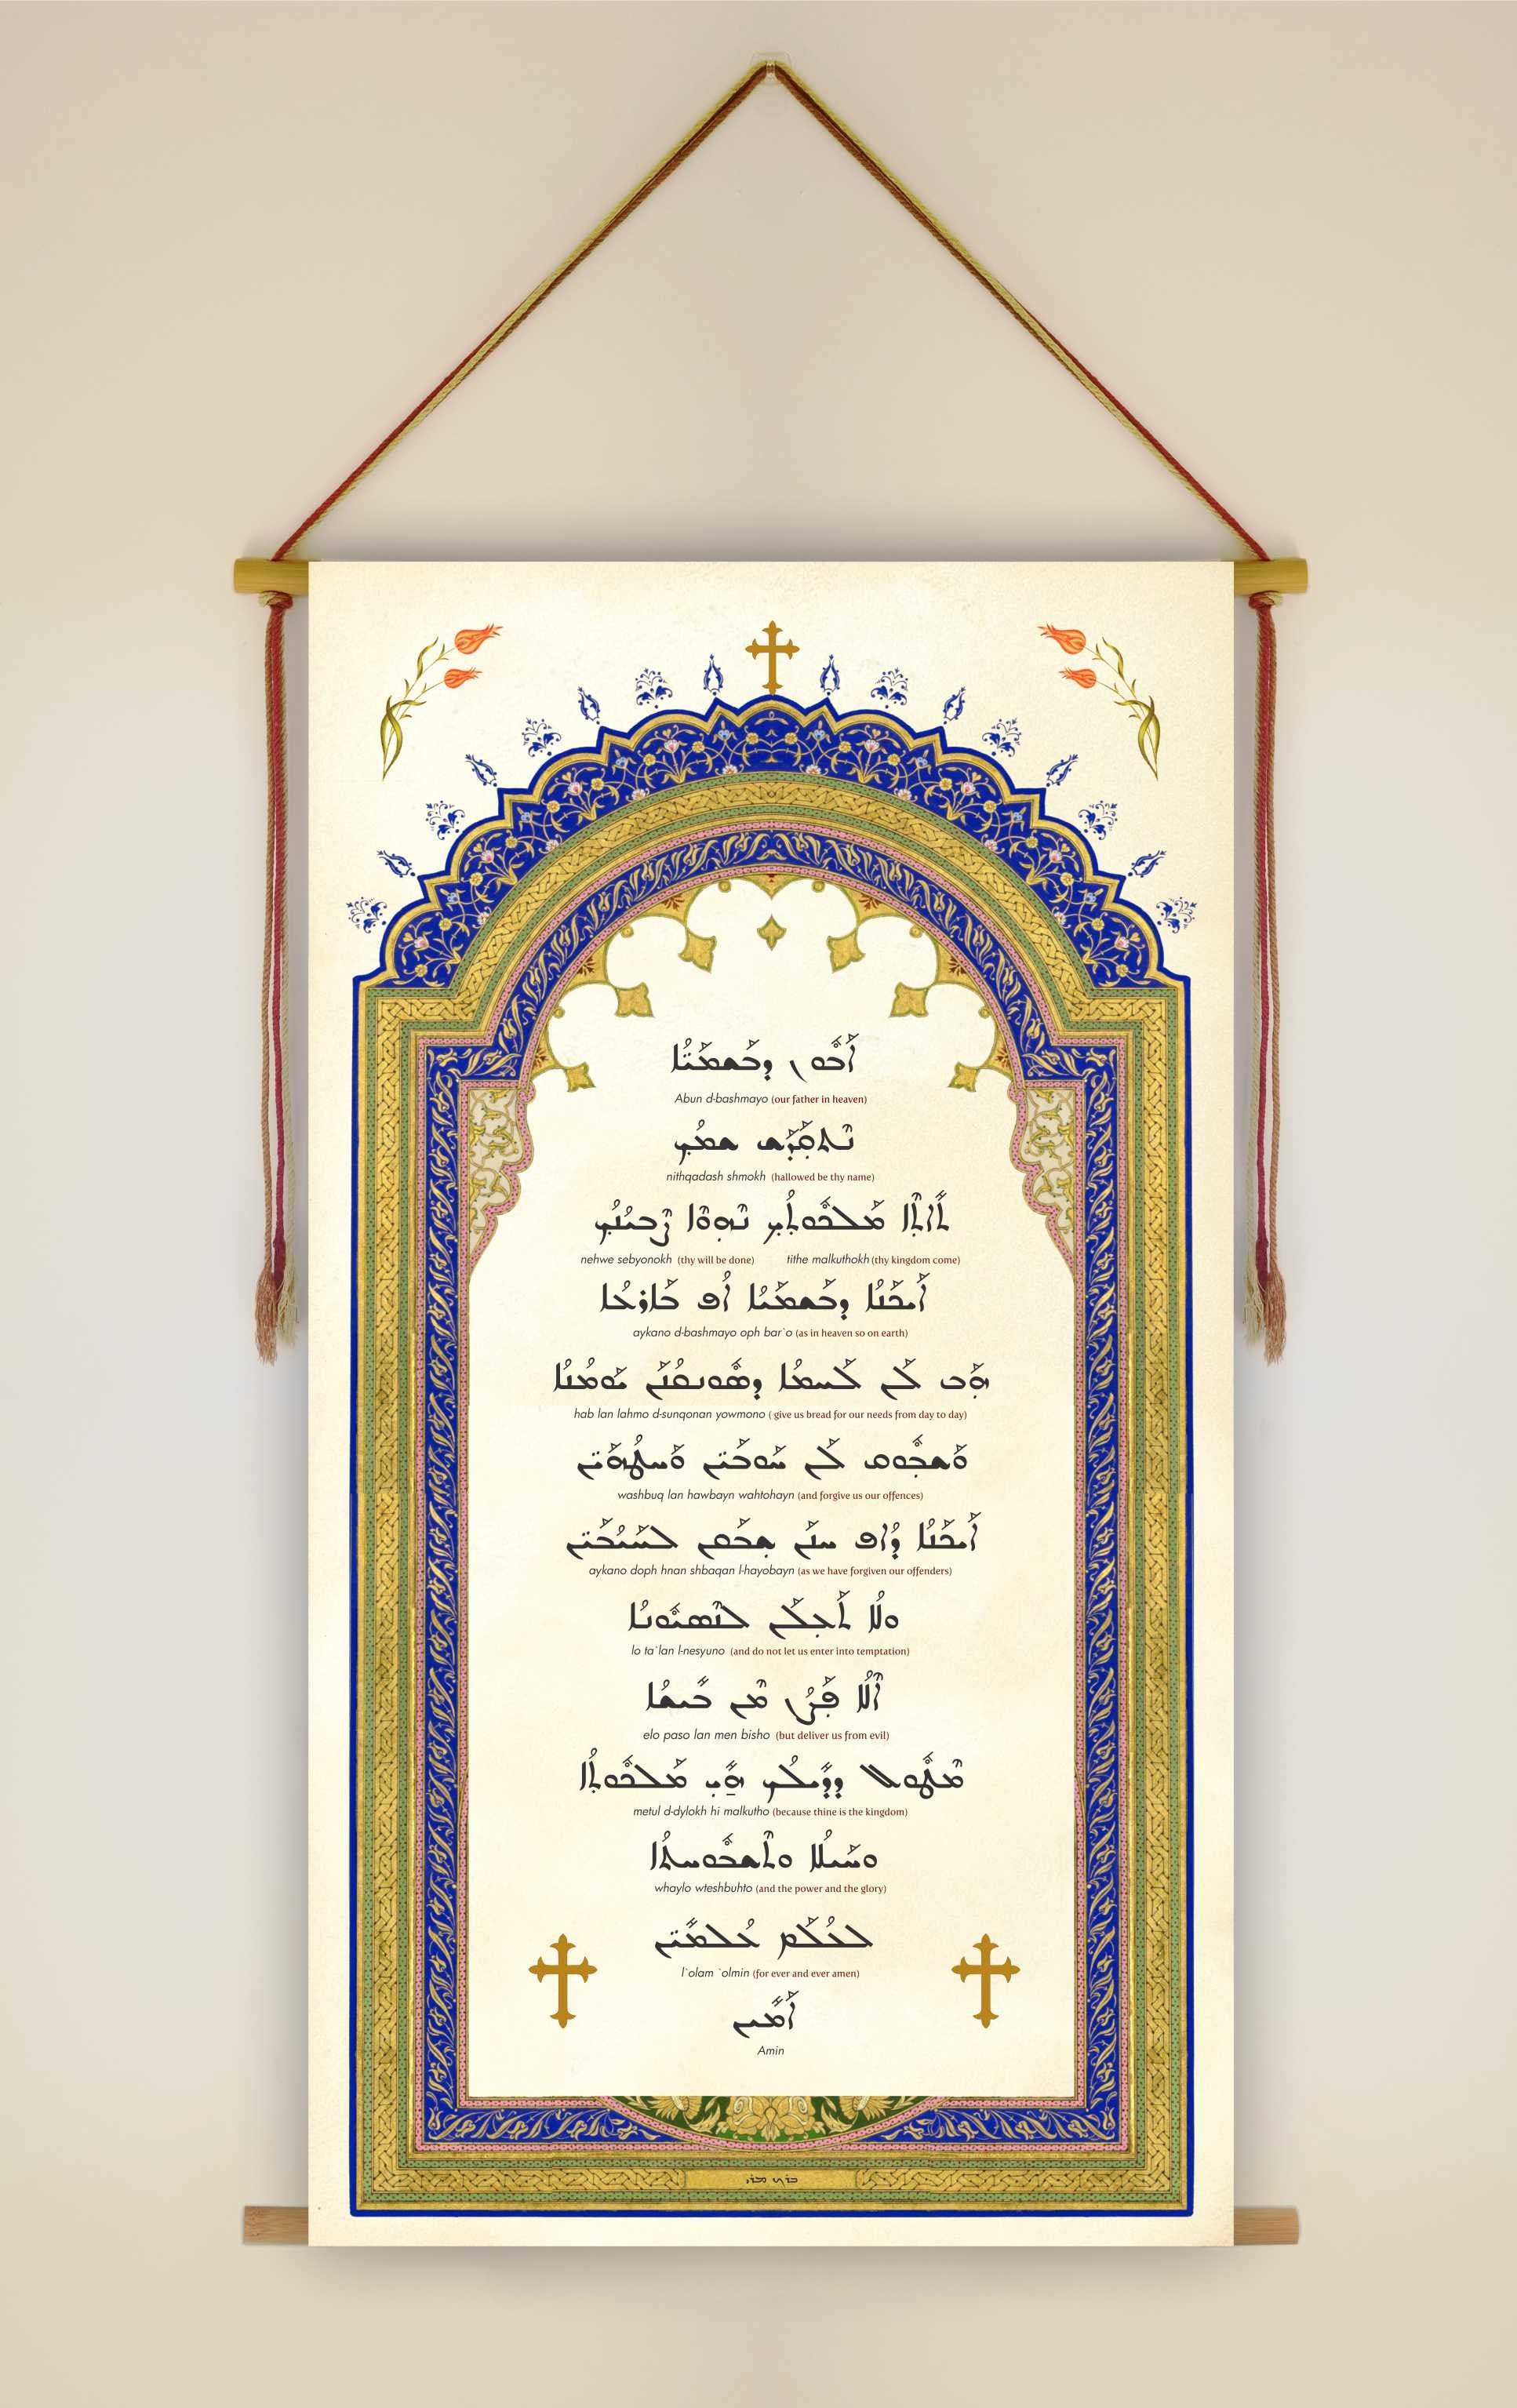 ܐܰܒܽܘܢ ܕܒܰܫܡܰܝ̈ܳܐ
Abun d-bashmayo (our father in heaven)
ܢܶܬܩܰܕܰܫ ܫܡܳܟ
nithqadash shmokh (hallowed be thy name)
ܬܺܐܬܶܐ ܡܰܠܟܽܘܬܳܟ ܢܶܗܘܶܐ ܨܶܒܝܳܢܳܟ
nehwe sebyonokh (thy will be done) tithe malkuthokh (thy kingdom come)
ܐܰܝܟܰܢܳܐ ܕܒܰܫܡܰܝܳܐ ܐܳܦ ܒܰܐܪܥܳܐ
aykano d-bashmayo oph bar`o (as in heaven so on earth)
ܗܰܒ ܠܰܢ ܠܰܚܡܳܐ ܕܣܽܘܢܩܳܢܰܢ ܝܰܘܡܳܢܳܐ
hab lan lahmo d-sunqonan yowmono ( give us bread for our needs from day to day)
ܘܰܫܒܽܘܩ ܠܰܢ ܚܰܘܒܰܝ̈ܢ ܘܰܚܛܳܗܰܝ̈ܢ
washbuq lan hawbayn wahtohayn (and forgive us our offences)
ܐܰܝܟܰܢܳܐ ܕܳܐܦ ܚܢܰܢ ܫܒܰܩܢ ܠܚܰܝܳܒܰܝ̈ܢ
aykano doph hnan shbaqan l-hayobayn (as we have forgiven our offenders)
ܘܠܳܐ ܬܰܥܠܰܢ ܠܢܶܣܝܽܘܢܳܐ
lo ta`lan l-nesyuno (and do not let us enter into temptation)
ܐܶܠܳܐ ܦܰܨܳܢ ܡܶܢ ܒܺܝܫܳܐ
elo paso lan men bisho (but deliver us from evil)
ܡܶܛܽܘܠ ܕܕܺܝܠܳܟ ܗܺܝ ܡܰܠܟܽܘܬܳܐ
metul d-dylokh hi malkutho (because thine is the kingdom)
ܘܚܰܝܠܳܐ ܘܬܶܫܒܽܘܚܬܳܐ
whaylo wteshbuhto (and the power and the glory)
ܠܥܳܠܰܡ ܥܳܠܡܺܝ̈ܢ
l`olam `olmin (for ever and ever amen)
ܐܰܡܺܝܢ
Amin